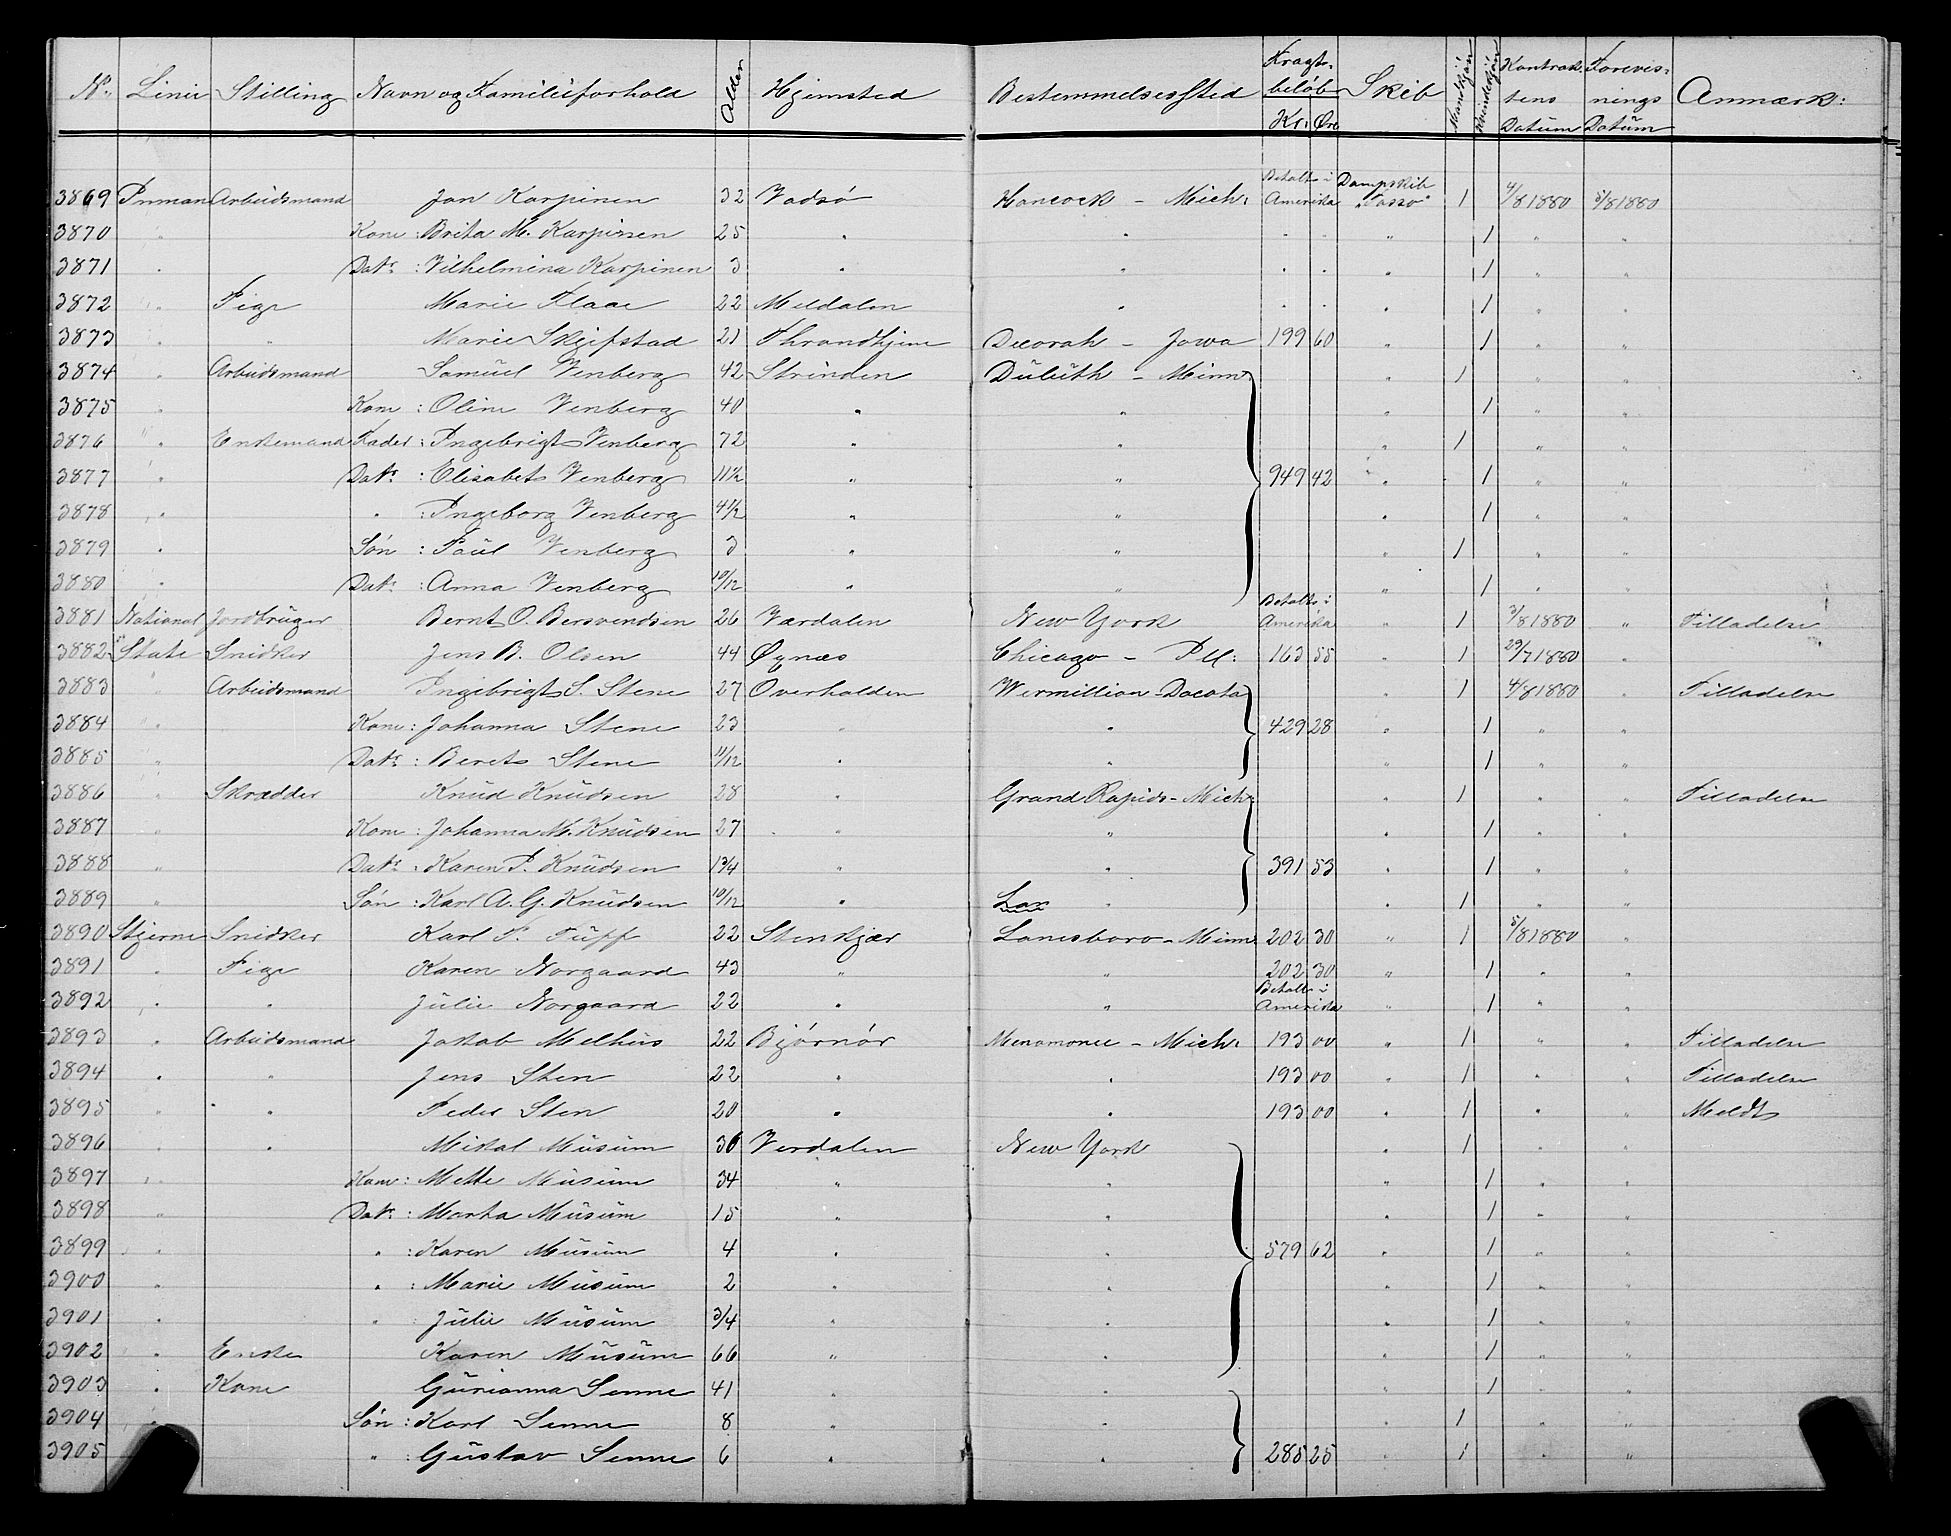 No. Linie Stilling Navn og Familieforhold Alder Hjemsted Bestemmelsessted Fragtbeløb Kr. Øre Skib Mandkjøn Kvindekjøn Kontraktens Datum Forevisnings Datum Anmærk:
3869 Inman Arbeidsmand Jan Karpinen 32 Vadsø Hancock - Mich: Betalt i Amerika Dampskib "Tasso" 1 4/8 1880 5/8 1880
3870 " Kone: Brita M. Karpinen 25 " " " " " 1 " "
3871 " Datr: Vilhelmina Karpinen 3 " " " " " 1 " "
3872 " Pige Marie Flaae 22 Meldalen " " " " 1 " "
3873 " " Marie Skjefstad 21 Throndhjem Decorah - Jowa 199 60 " 1 " "
3874 " Arbeidsmand Samuel Venberg 42 Strinden Duluth - Minn " 1 " "
3875 " Kone: Oline Venberg 40 " " " 1 " "
3876 " Enkemand Fader: Ingebrigt Venberg 72 " " " 1 " "
3877 " Datr: Elisabet Venberg 11½ " " 949 42 " 1 " "
3878 " " : Ingeborg Venberg 4½ " " " 1 " "
3879 " Søn: Paul Venberg 3 " " " 1 " "
3880 " Datr: Anna Venberg 10/12 " " " 1 " "
3881 National Jordbruger Bernt O. Bersvendsen 26 Værdalen New York Betalt i Amerika " 1 3/8 1880 " Tilladelse
3882 State Snidker Jens B. Olsen 44 Øynæs Chicago - Ill: 163 55 " 1 29/7 1880 "
3883 " Arbeidsmand Ingebrigt S. Stene 27 Overhalden Wermillion - Dacota " 1 4/8 1880 " Tilladelse
3884 " Kone: Johanna Stene 23 " " 429 28 " 1 " "
3885 " Datr: Beret Stene 11/12 " " " 1 " "
3886 " Skrædder Knud Knudsen 28 " Grand Rapids - Mich: " 1 " " Tilladelse
3887 " Kone: Johanna M. Knudsen 27 " " " 1 " "
3888 " Datr: Karen P. Knudsen 1¾ " " 391 53 " 1 " "
3889 " Søn: Karl A. G. Knudsen 10/12 " Lan " " 1 " "
3890 Stjerne Snidker Karl P. Tüpf 22 Stenkjær Lanesboro - Minn 202 30 " 1 5/8 1880 "
3891 " Pige Karen Norgaard 43 " " 202 30 " 1 " "
3892 " " Julie Norgaard 22 " " Betalt i Amerika " 1 " "
3893 " Arbeidsmand Jakob Melhus 22 Bjørnør Menomonee - Mich: 193 00 " 1 " " Tilladelse
3894 " " Jens Sten 22 " " 193 00 " 1 " " Tilladelse
3895 " " Peder Sten 20 " " 193 00 " 1 " " Meldt
3896 " " Mikal Musum 36 Verdalen New York " 1 " "
3897 " Kone: Mette Musum 34 " " " 1 " "
3898 " Datr: Marta Musum 15 " " " 1 " "
3899 " " : Karen Musum 4 " " 579 62 " 1 " "
3900 " " : Marie Musum 2 " " " 1 " "
3901 " " : Julie Musum 3/4 " " " 1 " "
3902 " Enke Karen Musum 66 " " " 1 " "
3903 " Kone Gurianna Senne 41 " " " 1 " "
3904 " Søn: Karl Senne 8 " " " 1 " "
3905 " " : Gustav Senne 6 " " 285 25 " 1 " "